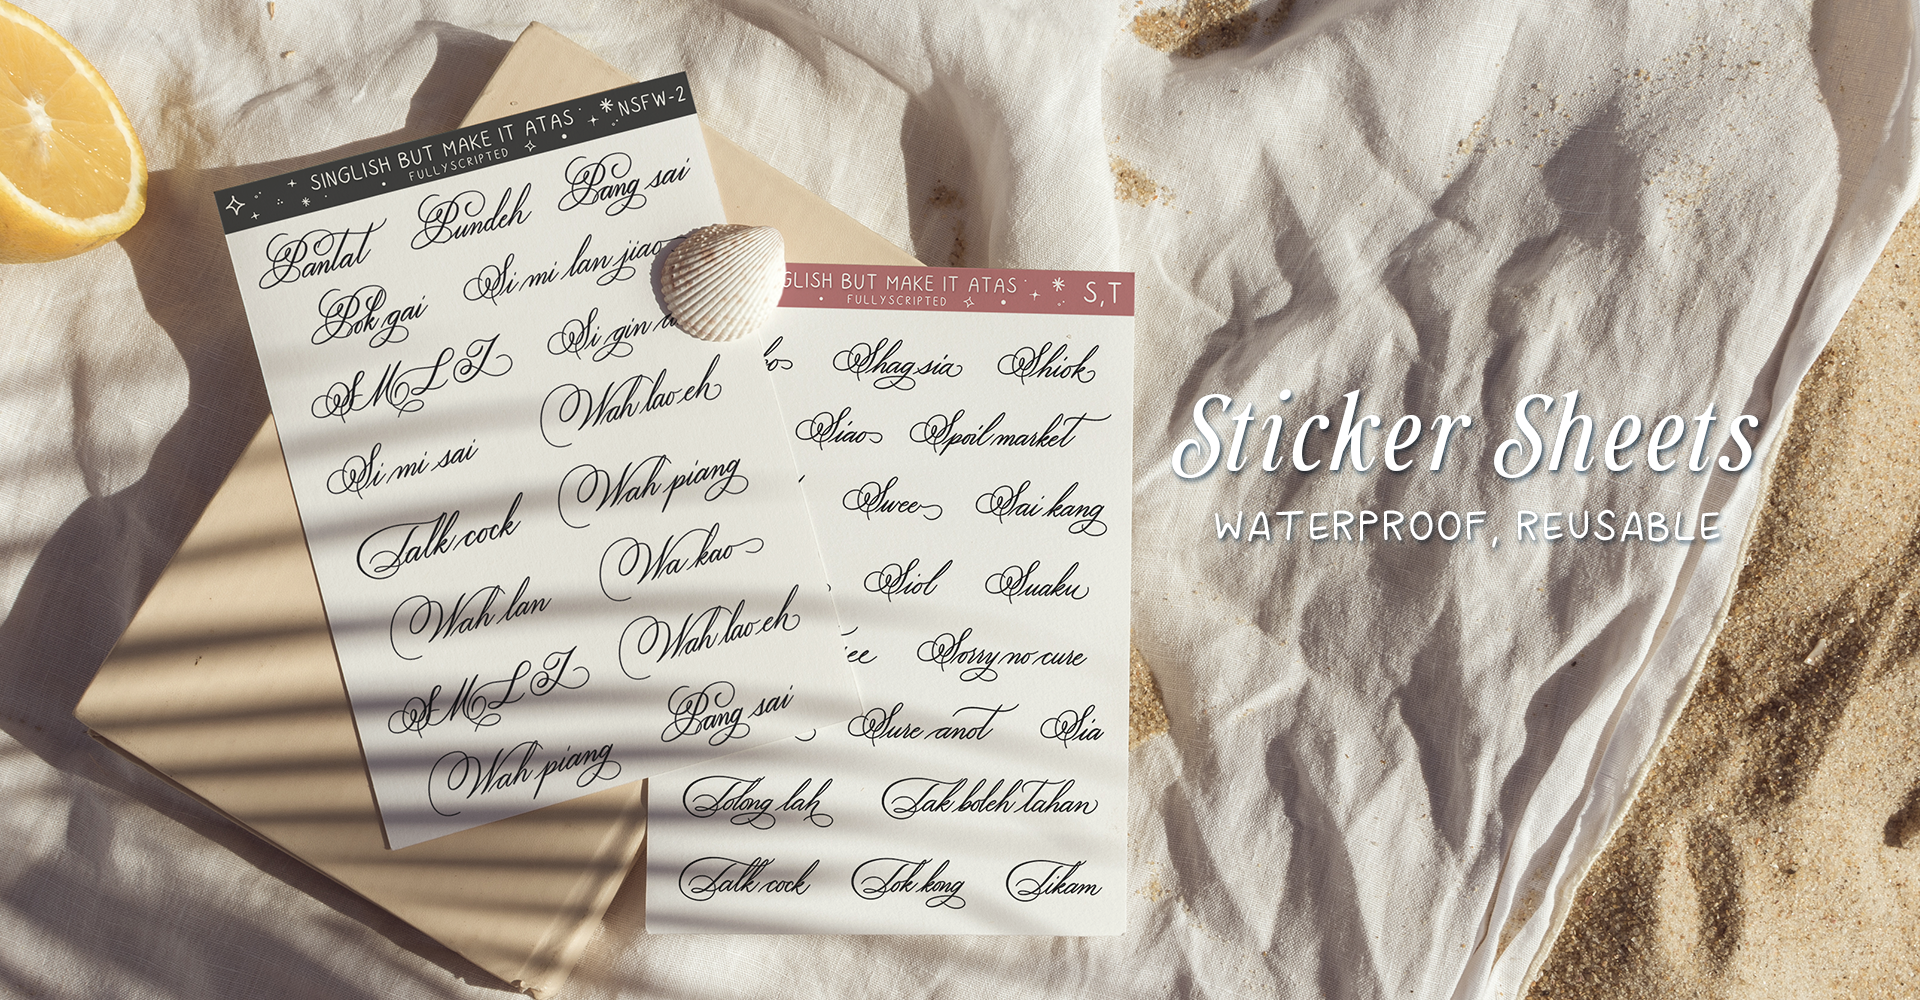 SINGLISH BUT MAKE IT ATAS
NSFW-2
FULLYSCRIPTED
Pantat
Pundeh
Pang sai
Pok gai
Si mi lan jiao
SMLJ
Si gin
Si mi sai
Wah lao eh
Talk cock
Wah piang
Wah lan
Wa kao
SMLJ
Wah lao eh
Wah piang
Pang sai
BUT MAKE IT ATAS
S,T
FULLYSCRIPTED
Shag sia
Shiok
Siao
Spoil market
Swee
Sai kang
Siol
Suaku
Sorry no cure
Sure anot
Sia
Tolong lah
Tak boleh tahan
Talk cock
Tok kong
Tikam
Sticker Sheets
WATERPROOF, REUSABLE